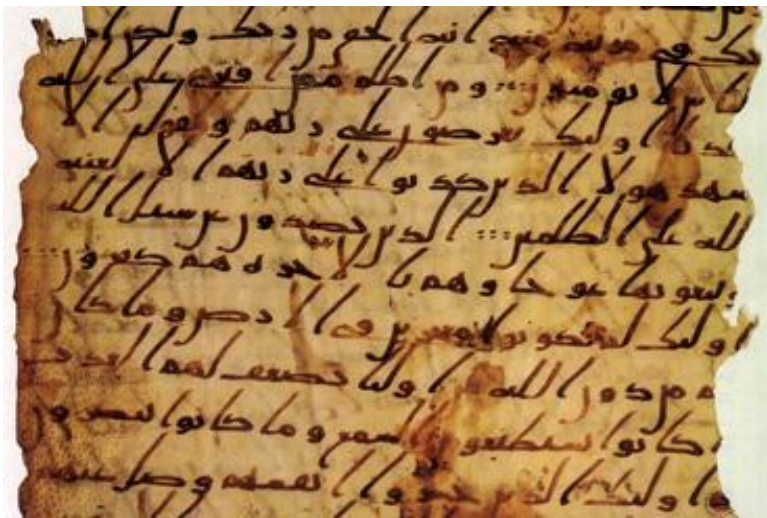 ك في مريه منه انه الحق من ربك ولكن ا
س لا يومنون ومن اظلم ممن افترى على الله
كذبا اوليك يعرضون على ربهم ويقول الا
شهد هولا الذين كذبوا على ربهم الا لعنه
الله على الظلمين الذين يصدون عن سبيل الله
ويبغونها عوجا وهم بالاخره هم كفرون
اوليك لم يكونوا معجزين في الارض وما كان
هم من دون الله من اوليا يضعف لهم العذب
ما كانوا يستطيعون السمع وما كانوا يبصرون
اوليك الذين خسروا انفسهم وضل عنهم